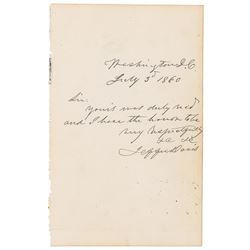 Washington D.C
July 3d 1860
Sir:
yours was duly recd
and I have the honor to be
very respectfully
&c &c
Jeffer Davis